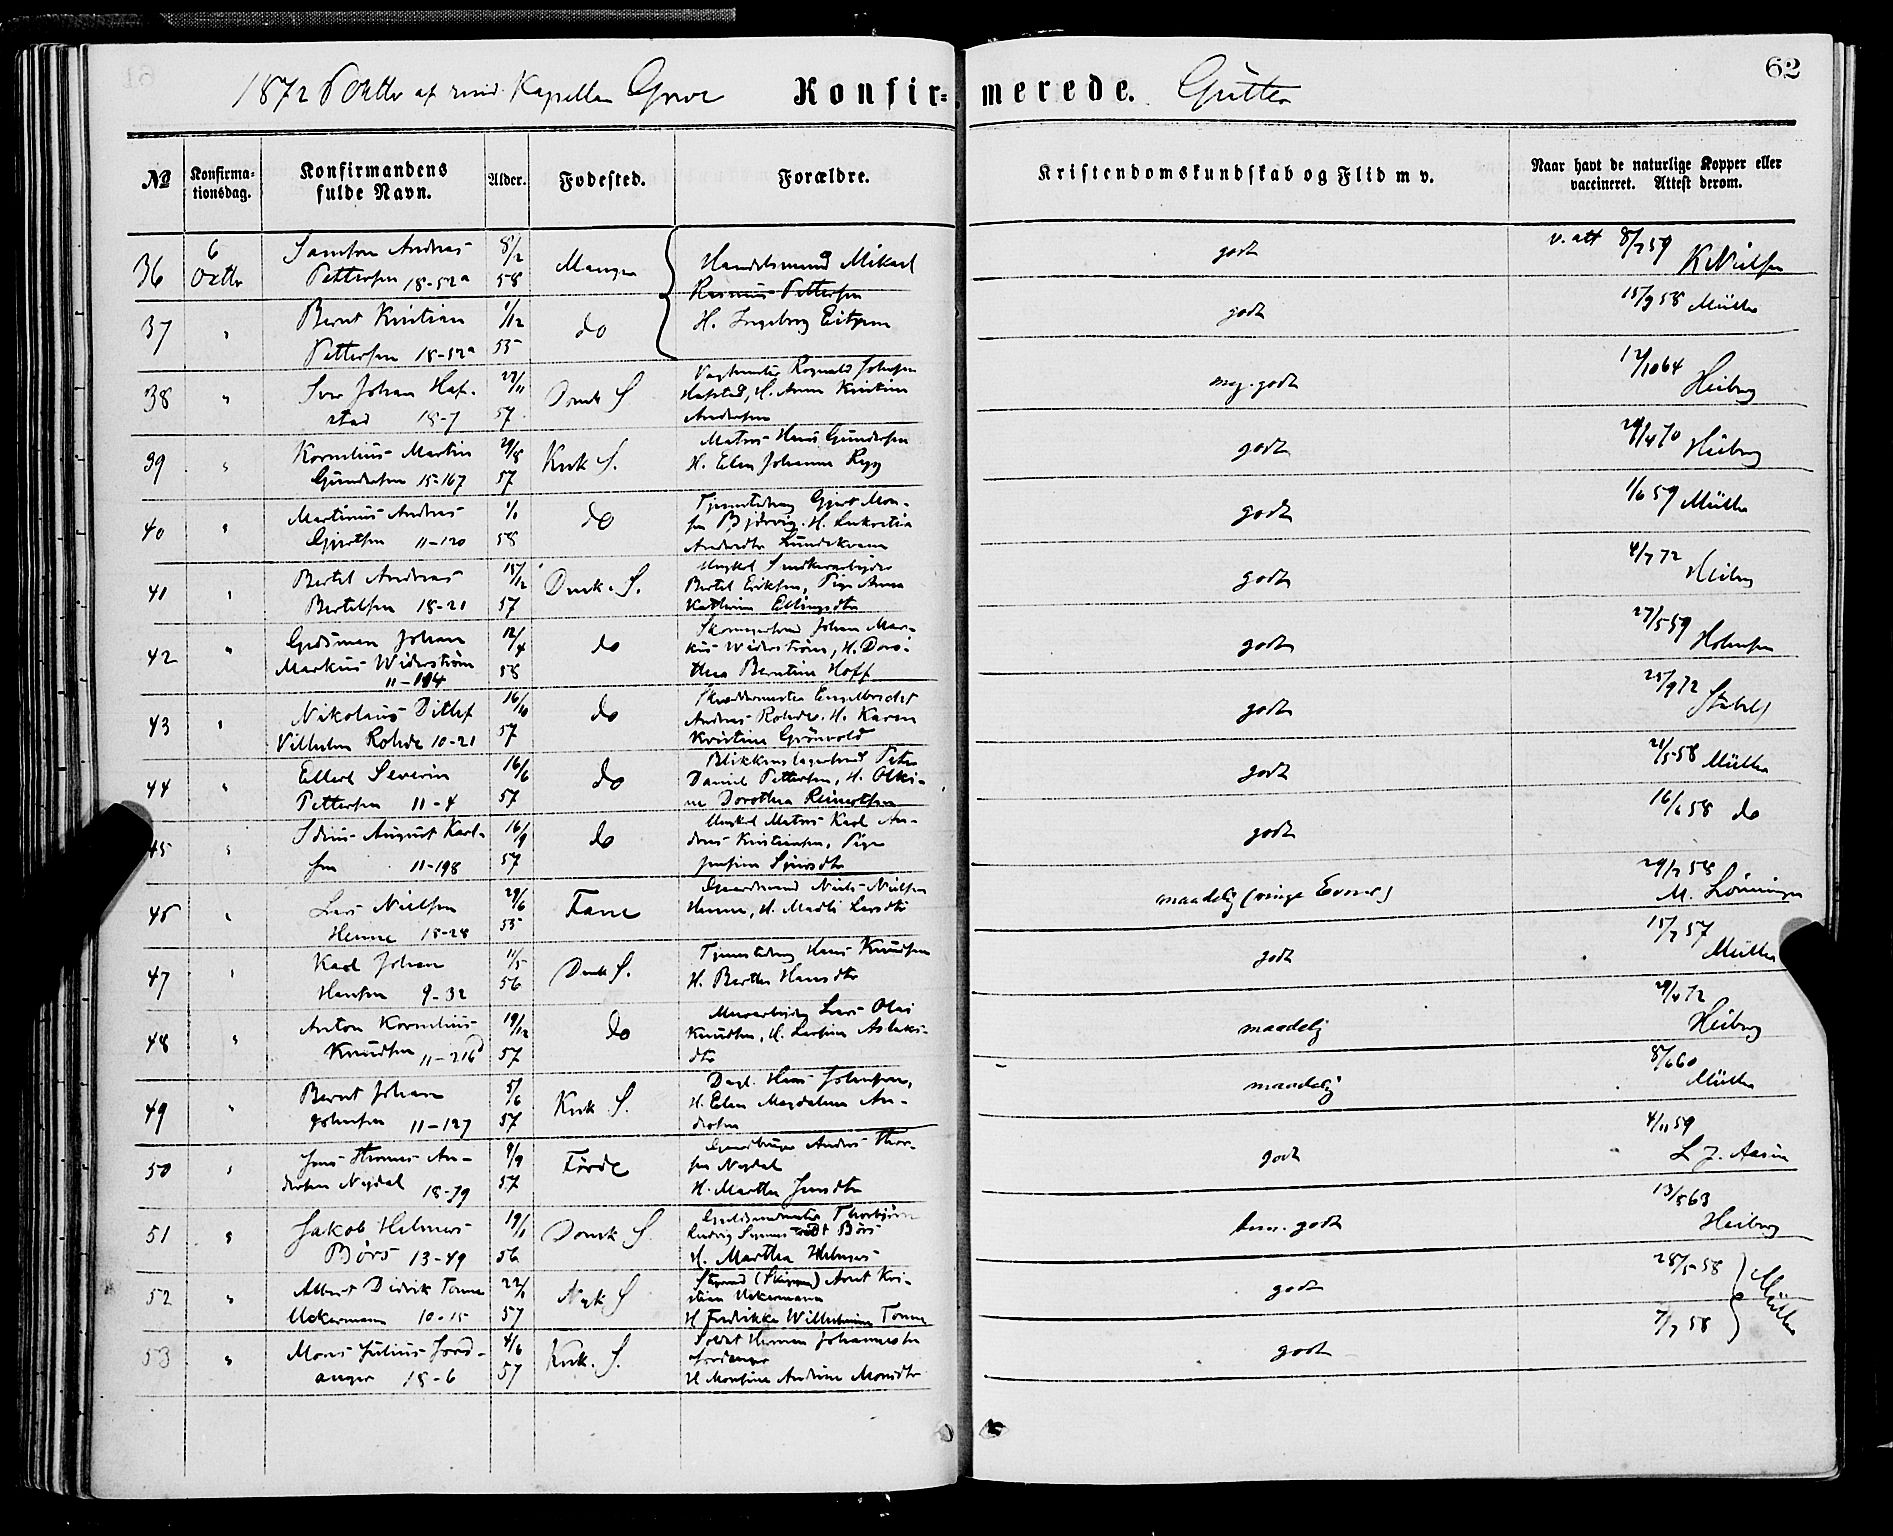 62
1872 6 Oktbr af resid. Kapellan Grove Konfir=merede. Gutter
No
Konfirma-
tionsdag.
Konfirmandens
fulde Navn.
Alder.
Fodested.
Forældre.
Kristendomskundskab og Flid m v.
Naar havt de naturlige Kopper eller
vaccineret. Attest derom.
36 6 Oktbr
Samson Andreas
Pettersen 18-52a
8/2 58
Manger
Handelsmand Mikael
Rasmus Pettersen
godt
v. att 8/7 59 K Nielsen
37 "
Bernt Kristian
Pettersen 18-52a
1/12 55
do
H. Ingeborg
godt
15/9 58 Müller
38 "
Iver Johan Haf-
stad 18-7
22/11 57
Domk S
Rognald Johnsen
Hafstad, H. Anne Kristine
Andersen
meg. godt
12/10 64 Heiberg
39 "
Kornelius Martin
Gundersen 15-167
29/8 57
Krk S.
Matros Hans Gundersen
H. Elen Johanne Rygg
godt
29/4 70 Heiberg
40 "
Martinus Andreas
Gjertsen 11-120
58
do
Gjert Mon-
sen
godt
1/6 59 Müller
41 "
Bertel Andreas
Bertelsen 18-21
15/12 57
Domk. S.
Ungkel Snedkerarbejder
Bertel Eriksen, Pige Anna
Kathrine Ellingsdtr
godt
4/7 72 Heiberg
42 "
Johan
Markus Widerström
11-194
12/4 58
do
Skomagersvend Johan Mar-
kus Widerström, H. Doro-
thea Berntine Hoff
godt
27/5 59
43 "
Nikolaus Ditlef
Vilhelm Rohde 10-21
16/10 57
do
Skræddermester Engelbrecht
Andreas Rohde. H. Karen
Kristine Grönvold
godt
25/9 72
44 "
Ellert Severin
Pettersen 11-4
16/6 57
do
Blikkenslagersvend Peter
Daniel Pettersen, H. Olki-
ne Dorothea Reinertsen
godt
21/5 58 Müller
45 "
August Karl-
sen 11-198
16/9 57
do
Ungkel Matros Karl An-
dreas Kristiansen, Pige
godt
16/6 58 do
45 "
Lars Nielsen
Henne 18-28
29/6 55
Fane
Gaardmand Niels Nielsen
Henne, H. Madli Larsdtr
maadelig (ringe Evner)
29/7 58
M. Lönningen
47 "
Karl Johan
Hansen 9-32
11/5 56
Domk S.
Hans Knudsen
H. Berthe Hansdtr
godt
15/7 57 Müller
48 "
Anton Kornelius
Knudsen 11-216d
19/12 57
do
Murarbejder Lars Olai
Knudsen, H. Larsine Aslaks-
dtr
maadelig
29/4 72 Heiberg
49 "
Bernt Johan
Johnsen 11-127
5/6 57
Krk S.
Dagl. Hans Johnsen,
H. Elen Magdalene An-
dersen
maadelig
8/6 60 Müller
50 "
Jens Thomas An-
dersen Nydal 18-79
9/9 57
Förde
Gaardbruger Anders Thor-
sen Nydal
H. Marthe Jensdtr
godt
4/11 59
51 "
Jakob Helmers
Börs 13-49
19/1 56
Domk S.
Thorbjörn
Börs
H. Martha Helmers
godt
13/8 63 Heiberg
52 "
Albert Didrik Tonne
Uckermann 10-15
22/1 57
Nyk S
Arnt Kri-
stian Uckermann
H Fredrikke Wilhelmine Tonne
godt
28/5 58
Müller
53 "
Mons Julius Jord-
anger 18-6
4/6 57
Krk. S.
Soldat Herman Johannesen
Jordanger
H Monsine Andrine Monsdtr
godt
7/7 58